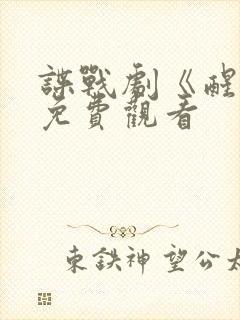 諜戰劇《醒
免費觀看
東鉄神望公太